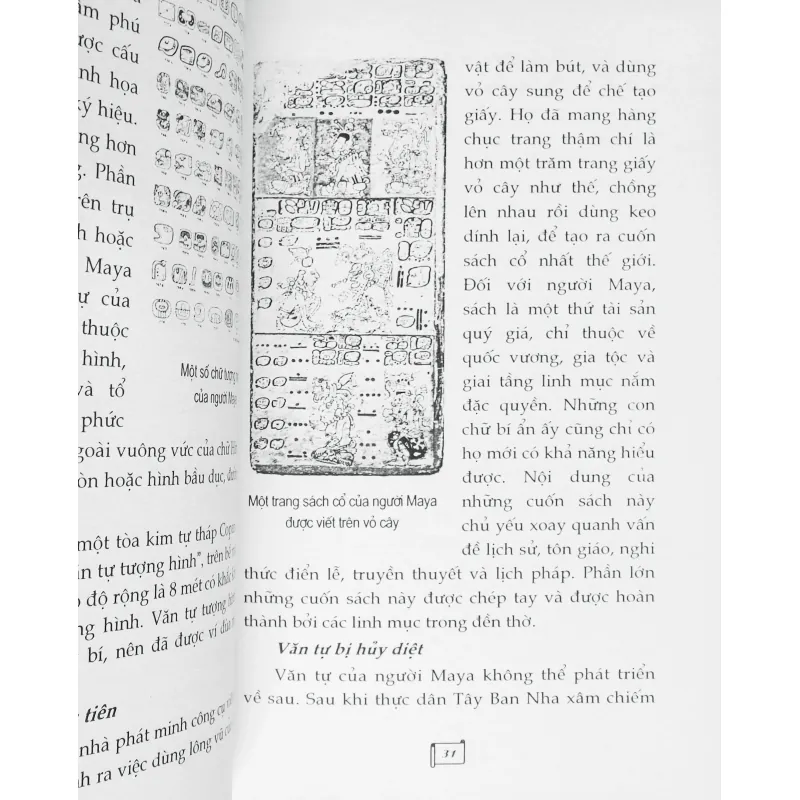 ậm phú
ợc cấu
nh họa
ký hiệu.
ng hơn
g. Phần
rên trụ
h hoặc
Maya
ự của
thuộc
hình,
và tổ
phức
Một số chữ tượng
của người Maya
goài vuông vức của chữ
òn hoặc hình bầu dục, đườ
một tòa kim tự tháp Copan
n tự tượng hình", trên bề
độ rộng là 8 mét có khắc
ng hình. Văn tự tượng
bí, nên đã được ví
tiên
nhà phát minh công cụ
h ra việc dùng lông vũ
Một trang sách cổ của người Maya
được viết trên vỏ cây
vật để làm bút, và dùng
vỏ cây sung để chế tạo
giấy. Họ đã mang hàng
chục trang thậm chí là
hơn một trăm trang giấy
vỏ cây như thế, chồng
lên nhau rồi dùng keo
dính lại, để tạo ra cuốn
sách cổ nhất thế giới.
Đối với người Maya,
sách là một thứ tài sản
quý giá, chỉ thuộc về
quốc vương, gia tộc và
giai tầng linh mục nắm
đặc quyền. Những con
chữ bí ẩn ấy cũng chỉ có
họ mới có khả năng hiểu
được. Nội dung của
những cuốn sách này
chủ yếu xoay quanh vấn
đề lịch sử, tôn giáo, nghi
thức điển lễ, truyền thuyết và lịch pháp. Phần lớn
những cuốn sách này được chép tay và được hoàn
thành bởi các linh mục trong đền thờ.
Văn tự bị hủy diệt
Văn tự của người Maya không thể phát triển
về sau. Sau khi thực dân Tây Ban Nha xâm chiếm
31